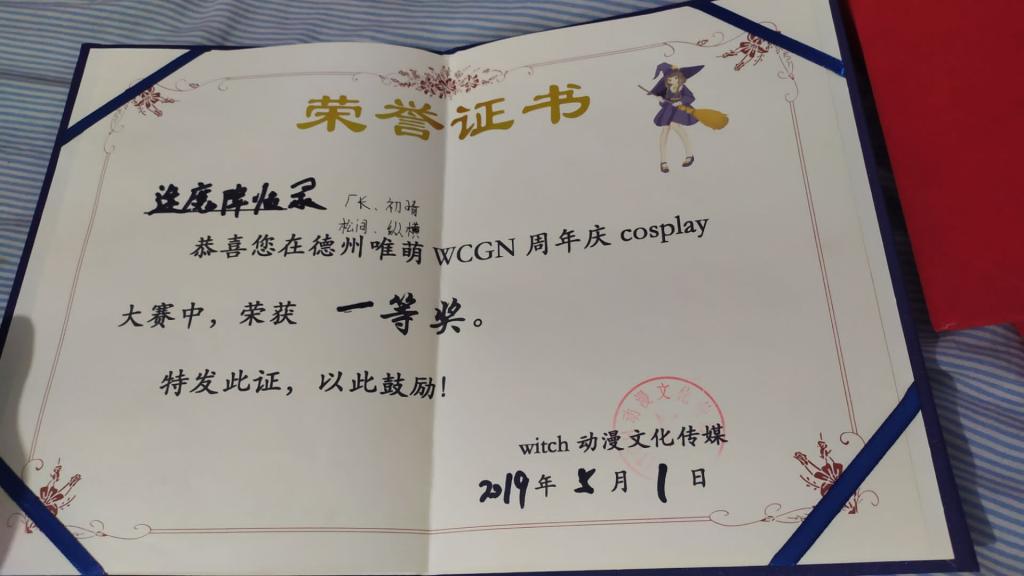 荣誉证书
厂长、初晴
松间、纵横
恭喜您在德州唯萌 WCGN 周年庆 cosplay
大赛中，荣获 一等奖。
特发此证，以此鼓励！
动漫文化
witch 动漫文化传媒
2019年 5月 1日